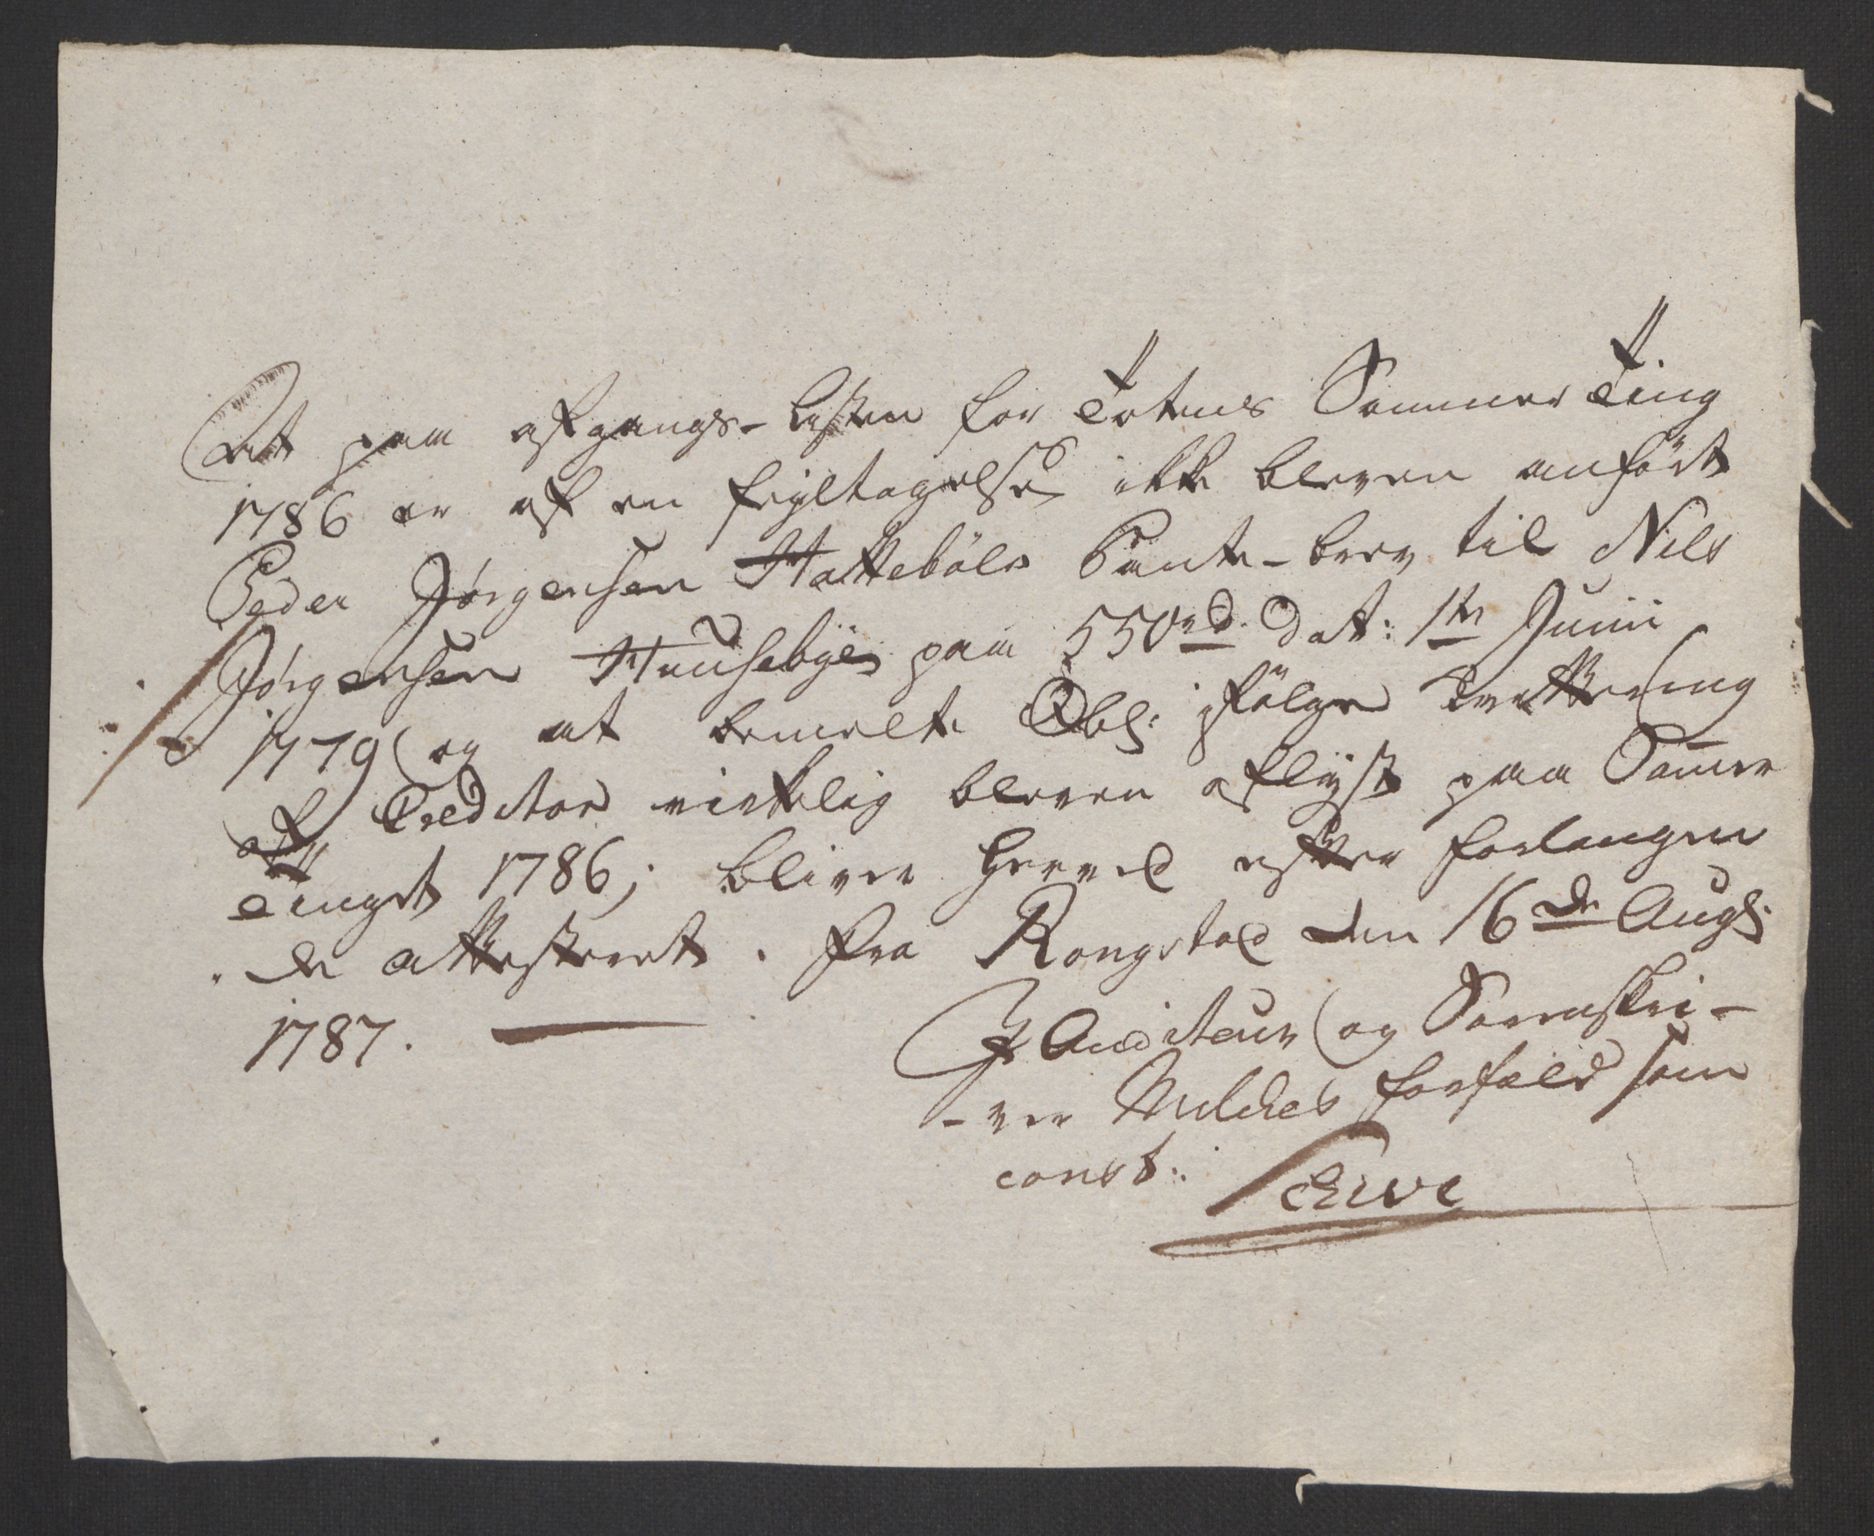 At paa afgangs-Listen for Totens Sommer Ting
1786 er af en feyltagelse ikke bleven anført
Peder Jørgensen Hattebøls Pante-brev til Nils
Jørgensen Huusebye paa 550 rd. dat: 1te Junii
1779 og at bemelte Obl: ifølge Qvittering
af Creditor virkelig bleven aflyst paa Som̅er
Tinget 1786; bliver herved efter forlangen
-de attesteret. fra Rongstad den 16de Augs:
1787.
I Auditeur og Sorenskri-
-ver Muldes forfald som
const: